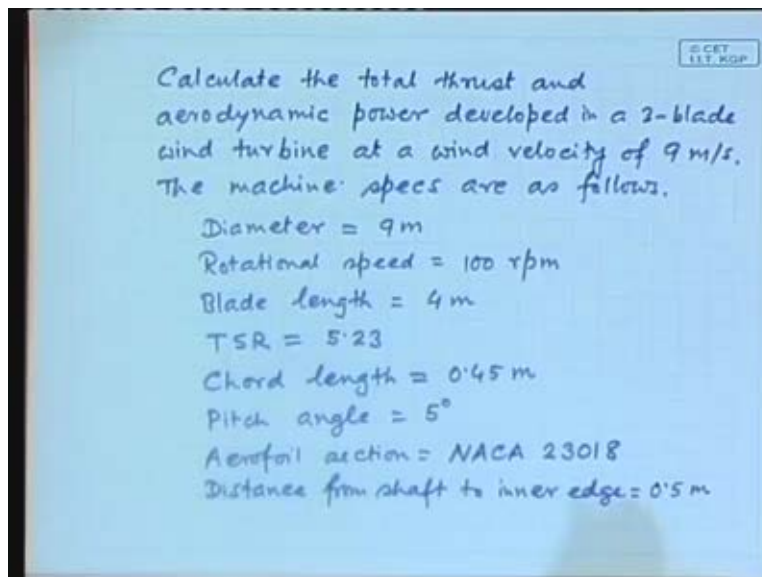 © CET
I.I.T. KGP
Calculate the total thrust and
aerodynamic power developed in a 2-blade
wind turbine at a wind velocity of 9 m/s.
The machine specs are as follows.
Diameter = 9m
Rotational speed = 100 rpm
Blade length = 4 m
TSR = 5.23
Chord length = 0.45 m
Pitch angle = 5°
Aerofoil section = NACA 23018
Distance from shaft to inner edge = 0.5 m